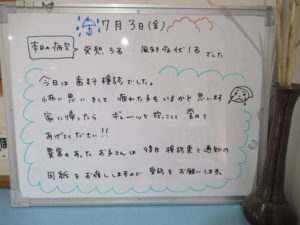 7月3日(金)
本日の病欠 発熱3名 風邪症状1名 でした
今日は歯科検診でした。
怖い思いをして 疲れた子もいるかと思います
家に帰ったら ギューッと抱っこして 誉めて
あげてください!!
異常のあったお子さんは 後日 検診票と通知の
用紙をお渡ししますので 受診をお願いします。